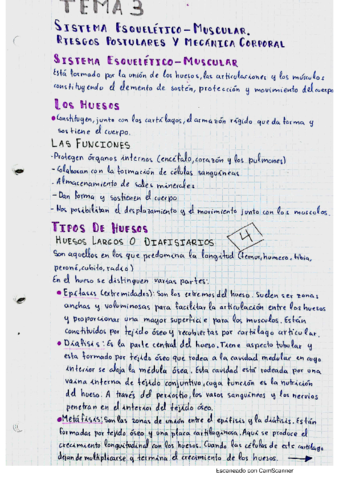 TEMA 3
SISTEMA ESQUELÉTICO-MUSCULAR.
RIESGOS POSTULARES Y MECÁNICA CORPORAL
SISTEMA ESQUELÉTICO-MUSCULAR
Está formado por la unión de los huesos, las articulaciones y los músculos
constituyendo el elemento de sostén, protección y movimiento del cuerpo
LOS HUESOS
•Constituyen, junto con los cartílagos, el armazón rígido que da forma y
sostiene el cuerpo.
LAS FUNCIONES
-Protegen órganos internos (encéfalo, corazón y los pulmones)
-Colaboran con la formación de células sanguíneas.
-Almacenamiento de sales minerales
-Dan forma y sostienen el cuerpo
-Nos posibilitan el desplazamiento y el movimiento junto con los musculos.
TIPOS DE HUESOS
4
HUESOS LARGOS O DIAFISIARIOS
Son aquellos en los que predomina la longitud (femur, humero, tibia,
peroné, cubito, radio)
En el hueso se distinguen varias partes:
•Epífises (extremidades): Son los extremos del hueso. Suelen ser zonas
anchas y voluminosas para facilitar la articulación entre los huesos
y proporcionar una mayor superficie para los musculos. Están
constituidos por tejido óseo y recubiertas por cartílago articular.
•Diáfisis: Es la parte central del hueso. Tiene aspecto tubular y
esta formado por tejido óseo que rodea a la cavidad medular en cuyo
interior se aloja la médula ósea. Esta cavidad está rodeada por una
vaina interna de tejido conjuntivo, cuya función es la nutrición
del hueso. A través del periostio, los vasos sanguíneos y los nervios
penetran en el interior del tejido óseo.
•Metáfisis: Son las zonas de unión entre el epífisis y la diáfisis. Están
formadas por tejido óseo y una placa cartilaginosa. Aquí se produce el
crecimiento longitudinal con los huesos. Cuando las células de este cartílago
dejan de multiplicarse, y termina el crecimiento de los huesos.
Escaneado con CamScanner